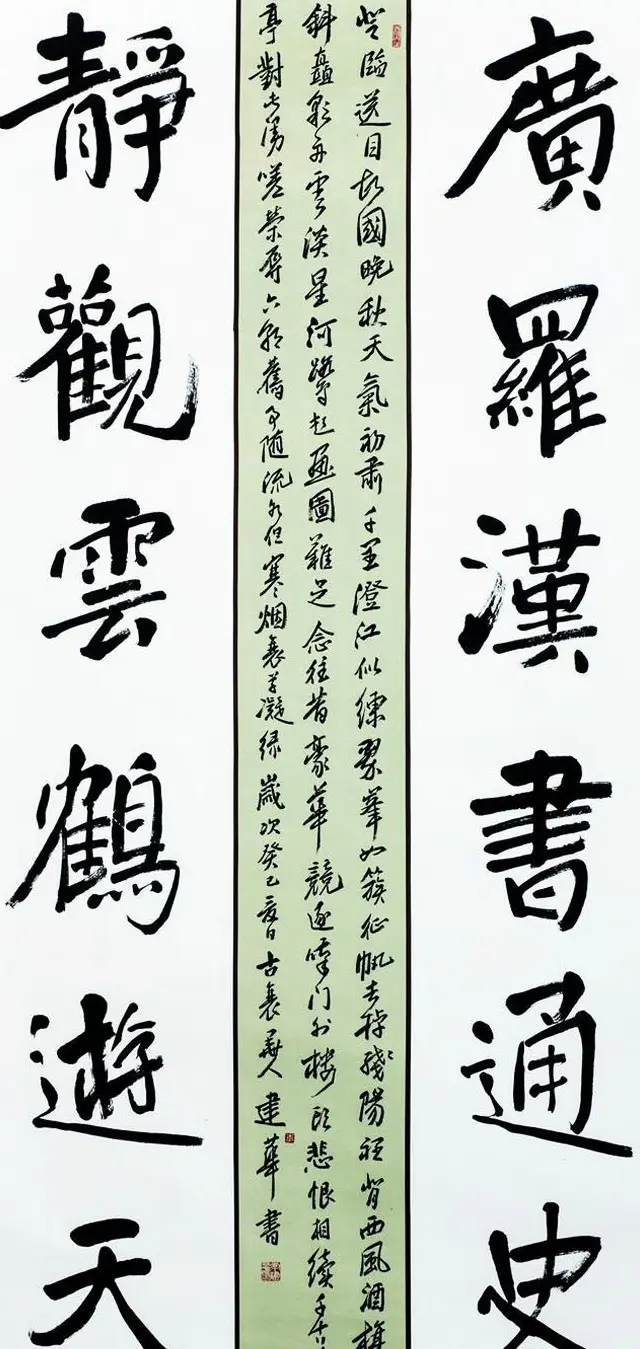 廣羅漢書通史
登臨送目故國晚秋天氣初肅千里澄江似練翠峯如簇征帆去棹殘陽裡背西風酒旗
斜矗彩舟雲淡星河鷺起畫圖難足念往昔豪華競逐嘆门外樓頭悲恨相續千古
亭對此漫嗟榮辱六朝舊事随流水但寒烟衰草凝緑歲次癸巳夏日古襄人建華書
靜觀雲鶴遊天